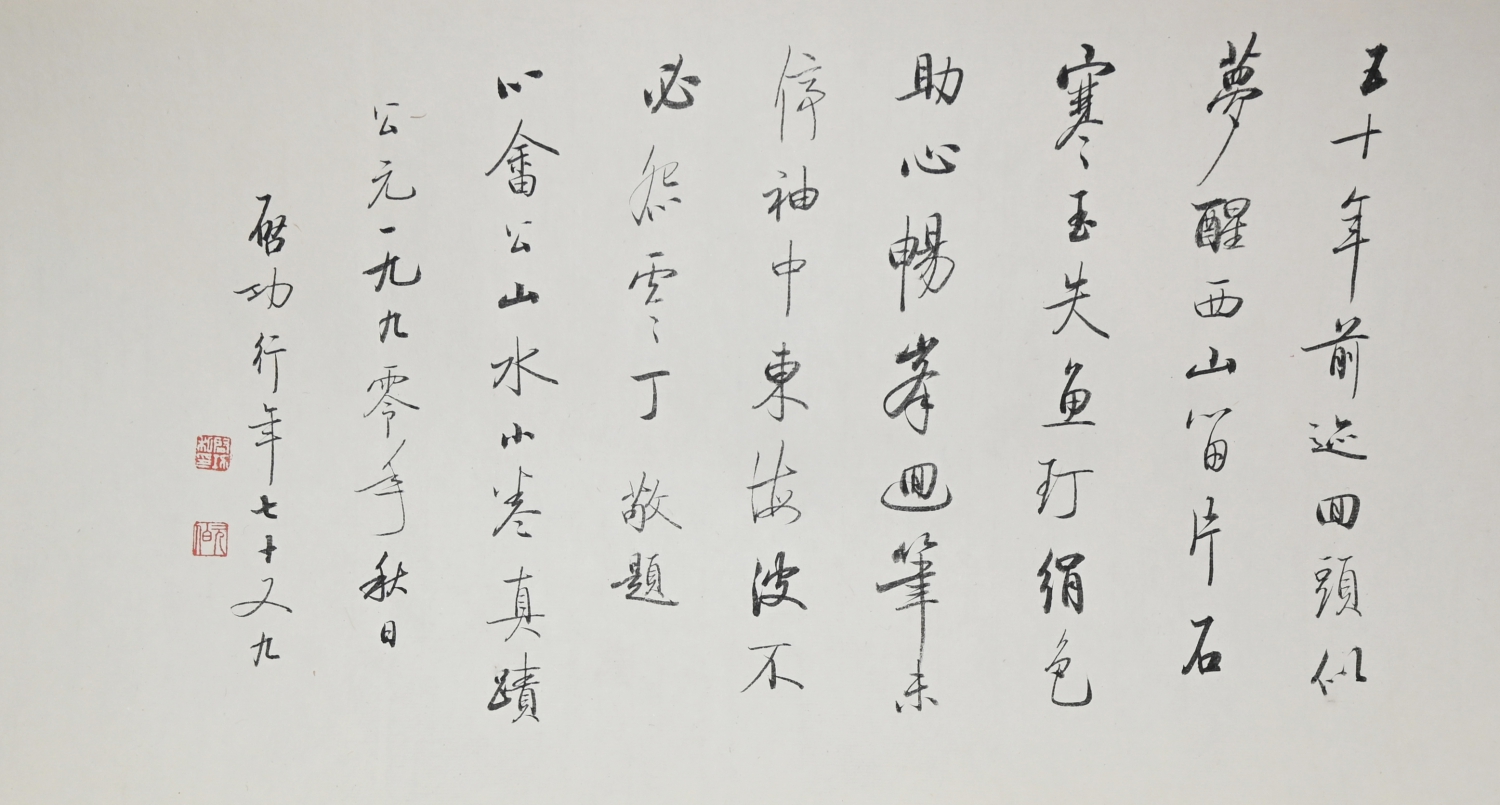 五十年前迹回頭似
夢醒西山留片石
寒玉失魚玎絹色
助心暢峯迴筆未
停袖中東海波不
必怨零丁 敬題
心畬公山水小卷真蹟
公元一九九零年秋日
啓功行年七十又九
元伯